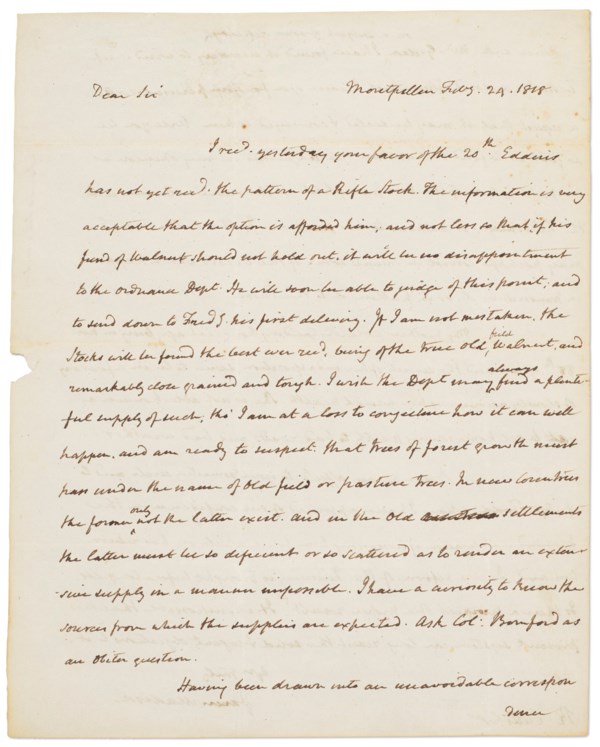 Dear Sir Montpellier Feby. 29. 1828
I recd. yesterday your favor of the 20th Eddins
has not yet recd. the pattern of a Rifle Stock. The information is very
acceptable that the option is afforded him, and not less so that if his
fund of Walnut should not hold out, it will be no disappointment
to the ordnance Dept. He will soon be able to judge of this point, and
to send down to Fredg. his first delivery. If I am not mistaken, the
Stocks will be found the best ever recd, being of the true old field Walnut, and
remarkably close grained and tough. I wish the Dept may always find a plenti-
ful supply of such, tho' I am at a loss to conjecture how it can well
happen, and am ready to suspect that trees of forest growth must
pass under the name of Old field or pasture trees. In new Countries
the former only not the latter exist. and in the Old settlements
the latter must be so deficient or so scattered as to render an exten-
sive supply in a manner impossible. I have a curiosity to know the
sources from which the supplies are expected. Ask Col: Bomford as
an Obiter question.
Having been drawn into an unavoidable correspon
dence